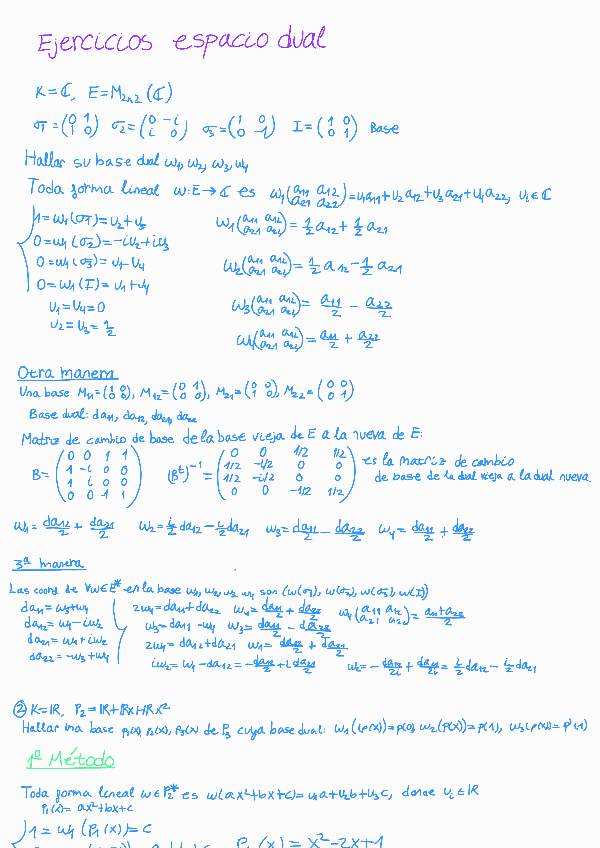 Ejercicios espacio dual
K=ℂ, E=M₂ₓ₂(ℂ)
σ1=(0 1; 1 0) σ2=(0 -i; i 0) σ3=(1 0; 0 -1) I=(1 0; 0 1) Base
Hallar su base dual w1, w2, w3, w4
Toda forma lineal w:E→ℂ es w1(a11 a12; a21 a22)=v1a11+v2a12+v3a21+v4a22, vi∈ℂ
1=w1(σ1)=v2+v3
w1(a11 a12; a21 a22)=1/2 a12+1/2 a21
0=w1(σ2)=-iv2+iv3
w2(a11 a12; a21 a22)=i/2 a12-i/2 a21
0=w1(σ3)=v1-v4
0=w1(I)=v1+v4
w3(a11 a12; a21 a22)=a11/2 - a22/2
v1=v4=0
v2=v3=1/2
w4(a11 a12; a21 a22)=a11/2 + a22/2
Otra manera
Una base M11=(1 0; 0 0), M12=(0 1; 0 0), M21=(0 0; 1 0), M22=(0 0; 0 1)
Base dual: da11, da12, da21, da22
Matriz de cambio de base de la base vieja de E a la nueva de E:
B=(0 0 1 1; 1 -i 0 0; 1 i 0 0; 0 0 -1 1) (Bᵗ)⁻¹=(0 0 1/2 1/2; 1/2 -i/2 0 0; 1/2 -i/2 0 0; 0 0 -1/2 1/2) es la matriz de cambio
de base de la dual vieja a la dual nueva
w1=da12/2+da21/2 w2=i/2 da12-i/2 da21 w3=da11/2-da22/2 w4=da11/2+da22/2
3ª manera
Las coord de ∀w∈E* en la base w1, w2, w3, w4 son (w(σ1), w(σ2), w(σ3), w(I))
da11=w3+w4
2w4=da11+da22 w4=da11/2+da22/2 w4(a11 a12; a21 a22)=a11+a22/2
da12=w1-iw2
w3=da11-w4 w3=da11/2-da22/2
da21=w1+iw2
2w1=da12+da21 w1=da12/2+da21/2
da22=-w3+w4
iw2=w1-da12=-da12/2+da21/2 w2=-da12/2i+da21/2i=i/2 da12-i/2 da21
② K=ℝ, P2=ℝ+ℝx+ℝx²
Hallar una base p1(x), p2(x), p3(x) de P3 cuya base dual: w1(p(x))=p(0), w2(p(x))=p(1), w3(p(x))=p'(1)
1º Método
Toda forma lineal w∈P2* es w(ax²+bx+c)=v1a+v2b+v3c, donde vi∈ℝ
p1(x)=ax²+bx+c
1=w1(p1(x))=c
p1(x)=x²-2x+1